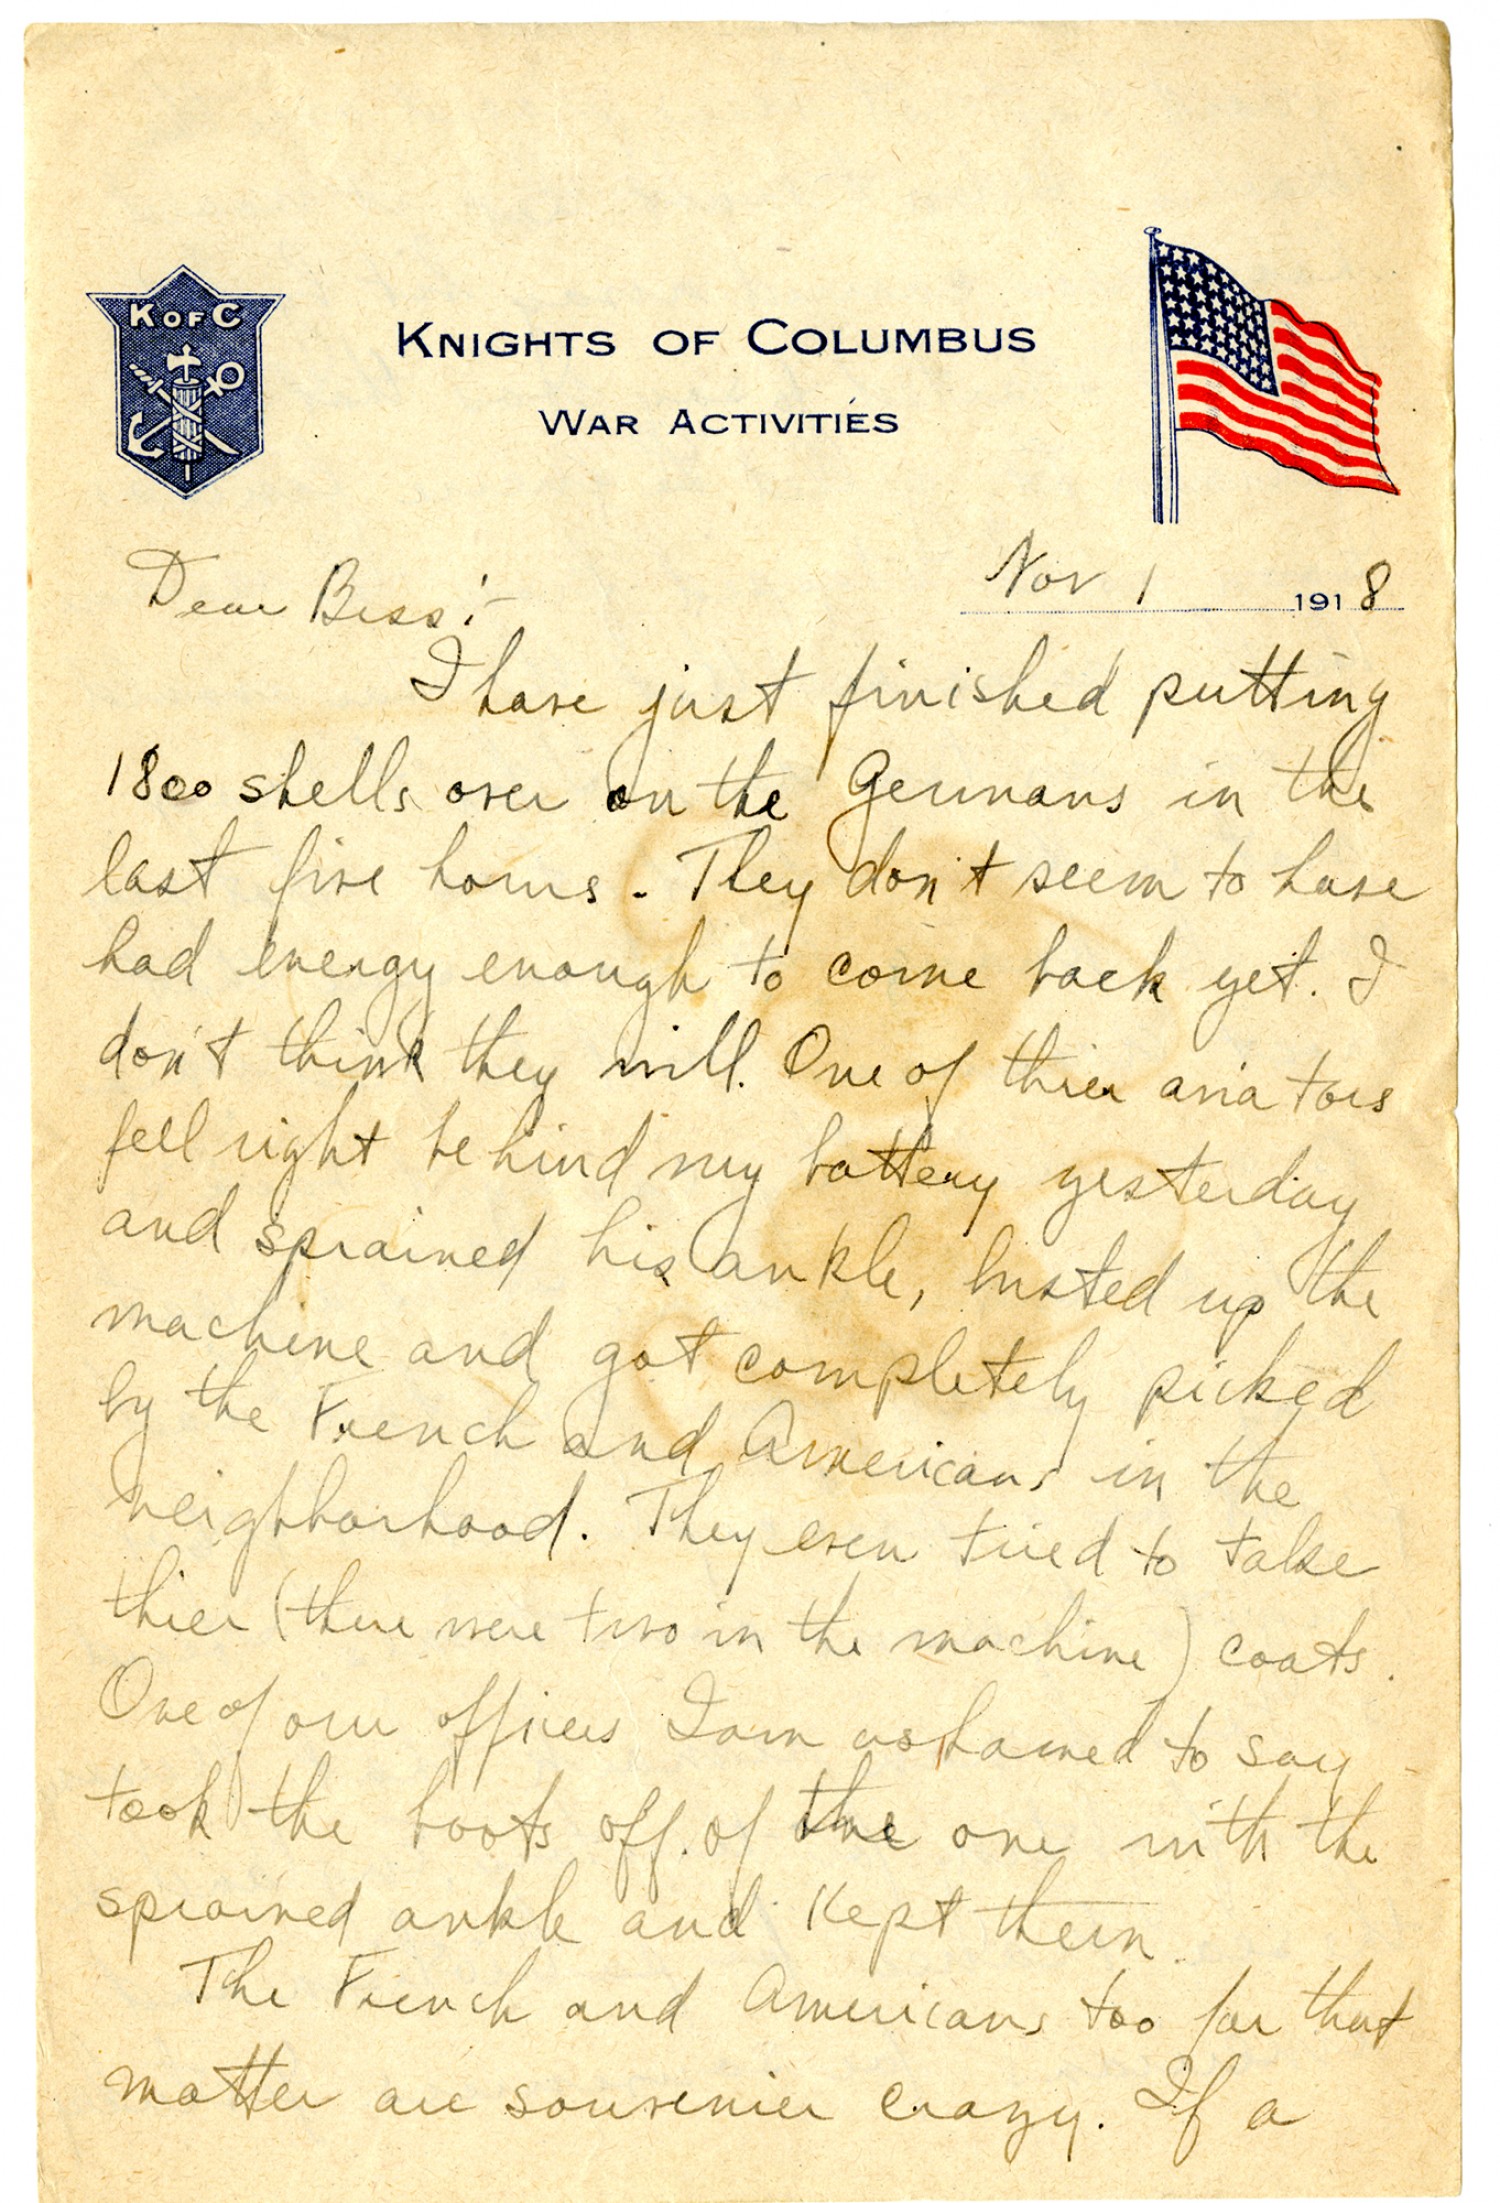 K OF C
KNIGHTS OF COLUMBUS
WAR ACTIVITIES
Nov 1 1918
Dear Bess:-
I have just finished putting
1800 shells over on the Germans in the
last five hours. They don't seem to have
had energy enough to come back yet. I
don't think they will. One of thier aviators
fell right behind my battery yesterday
and sprained his ankle, busted up the
machine and got completely picked
by the French and Americans in the
neighborhood. They even tried to take
thier (there were two in the machine) coats.
One of our officers I am ashamed to say
took the boots off of the one with the
sprained ankle and kept them.
The French and Americans too for that
matter are souvenier crazy. If a